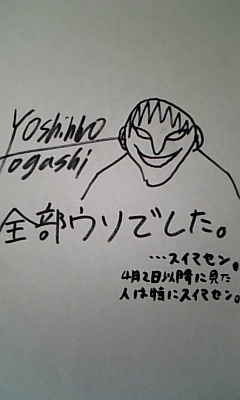 Yoshihiro
Togashi
全部ウソでした。
…スイマセン。
4月2日以降に見た
人は特にスイマセン。